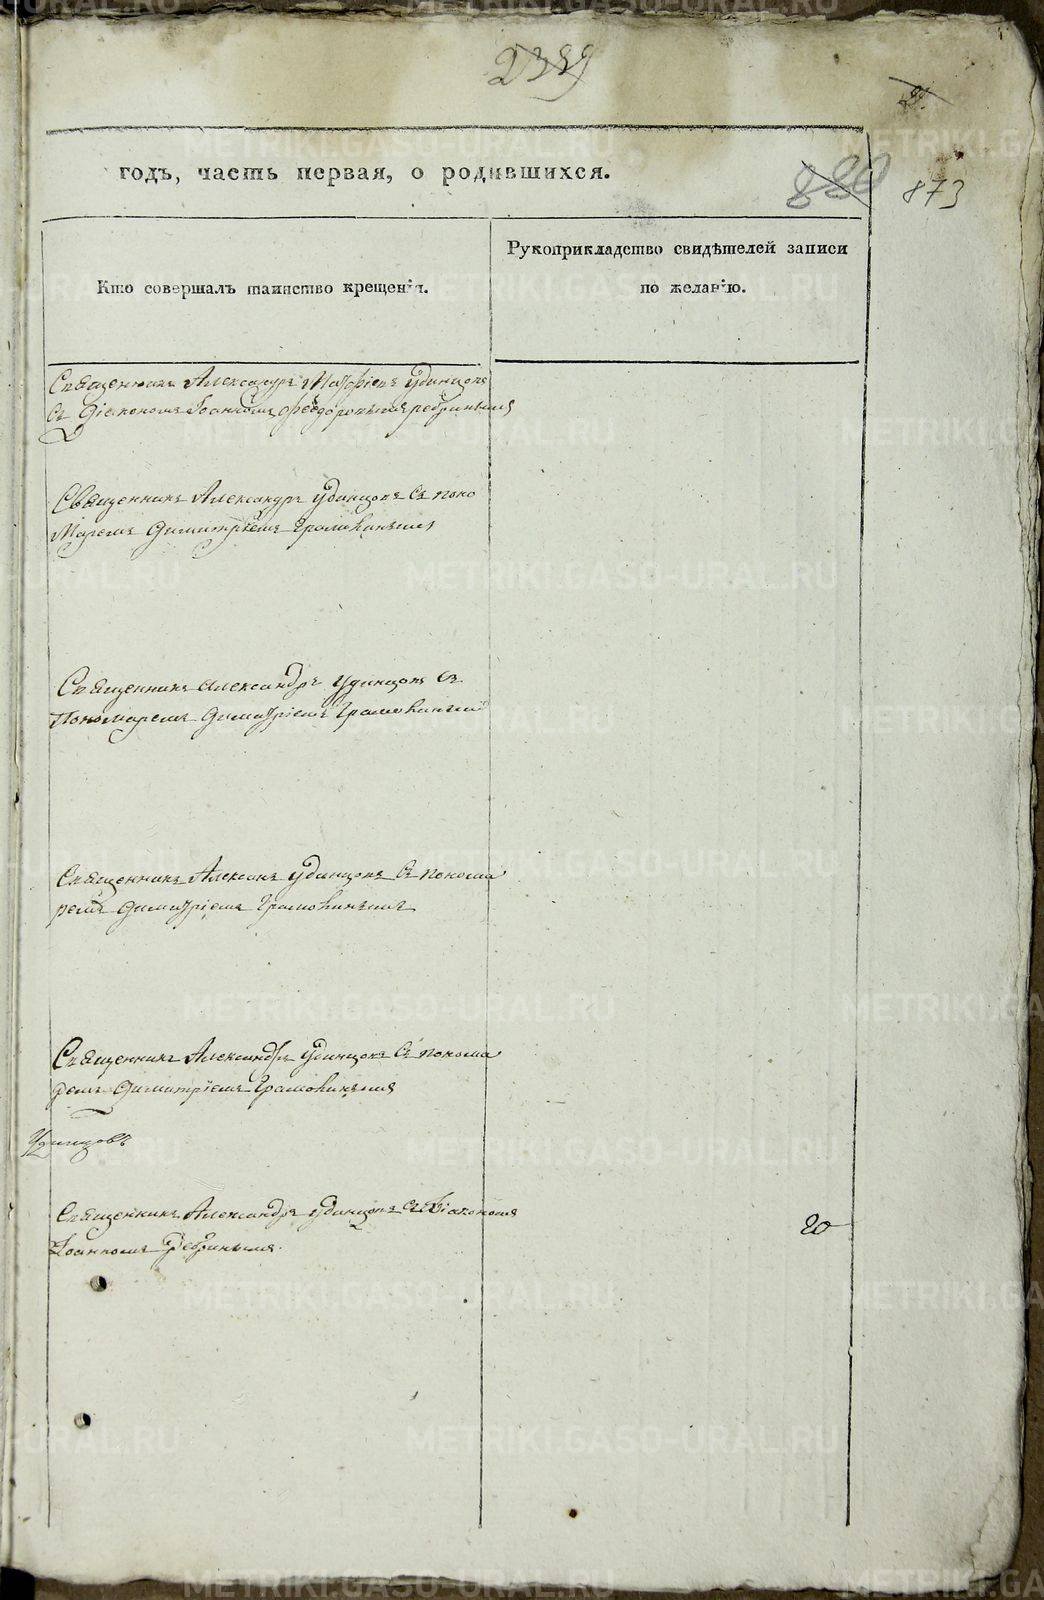 2339
2.
годъ, часть первая, о родившихся.
880
873
Кто совершалъ таинство крещенія.
Рукоприкладство свидѣтелей записи
по желанію.
Священникъ Александръ Матфіевъ Удинцовъ
съ Діакономъ Іоанномъ Феодоровымъ Ребринымъ
Священникъ Александръ Удинцовъ съ поно
маремъ Димитріемъ Грамокинымъ
Священникъ Александръ Удинцовъ съ
Пономаремъ Димитріемъ Грамокинымъ
Священникъ Алексанъ Удинцовъ съ понома
ремъ Димитріемъ Грамокинымъ
Священникъ Александръ Удинцовъ съ понома
ремъ Димитріемъ Грамокинымъ
Удинцовъ
Священникъ Александръ Удинцовъ съ Діакономъ
Іоанномъ Ребринымъ.
20
METRIKI.GASO-URAL.RU